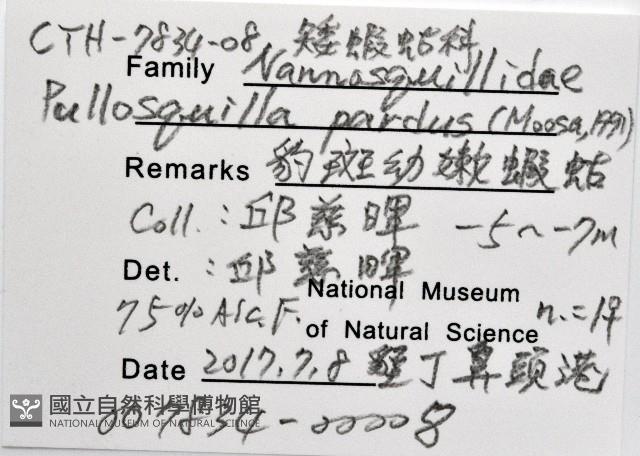 CTH-7834-08 矮蝦蛄科
Family Nannosquillidae
Pullosquilla pardus (Moosa, 1991)
Remarks 豹斑幼嫩蝦蛄
Coll.: 邱慈暉 -5~-7m
Det.: 邱慈暉
National Museum
75% Alc. F. of Natural Science n.=1♀
Date 2017.7.8 墾丁鼻頭港
國立自然科學博物館
NATIONAL MUSEUM OF NATURAL SCIENCE
7834-00008